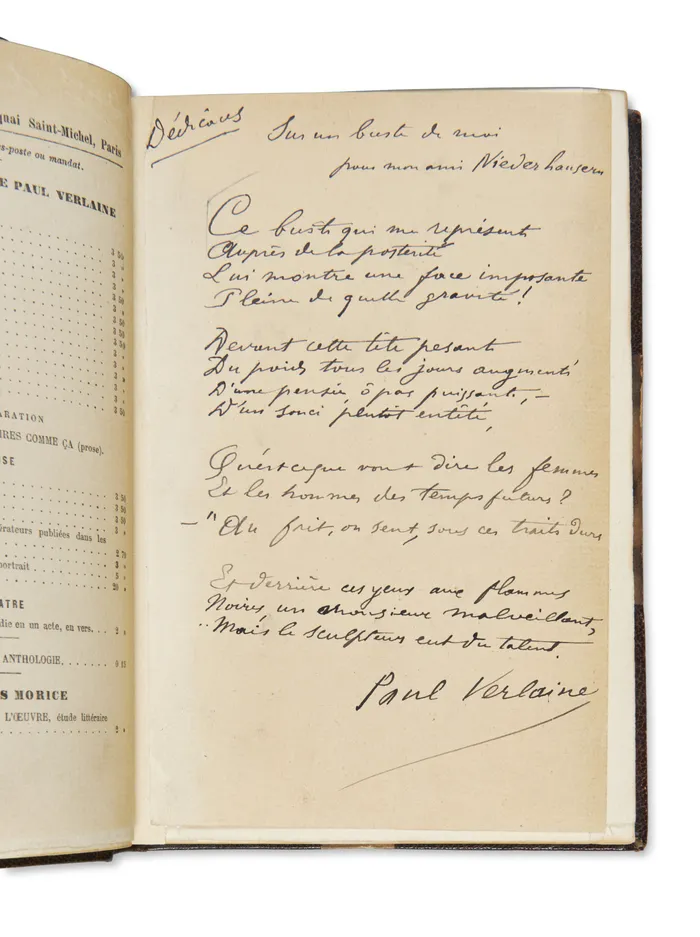 quai Saint-Michel, Paris
s-poste ou mandat.
E PAUL VERLAINE
3 50
3 »
3 50
3 50
3 50
3 »
3 »
3 »
3 »
3 50
ARATION
IRES COMME ÇA (prose).
SE
3 50
3 50
3 50
3 »
érateurs publiées dans les
2 70
3 »
portrait
5 »
20 »
ATRE
die en un acte, en vers. . . 2 »
ANTHOLOGIE. . . . . . . 0 15
S MORICE
L'ŒUVRE, étude littéraire
2 »
Dédicaces
Sur un buste de moi
pour mon ami Niederhausern
Ce buste qui me représente
Auprès de la postérité
Lui montre une face imposante
Pleine de quelle gravité!
Devant cette tête pesante
Du poids tous les jours augmenté
D'une pensée ô pas puissante, –
D'un souci plutôt entêté,
Qu'est-ce que vont dire les femmes
Et les hommes des temps futurs?
– "Au frit, on sent, sous ces traits durs
Et derrière ces yeux aux flammes
Noires un monsieur malveillant,
"Mais le sculpteur eut du talent.
Paul Verlaine